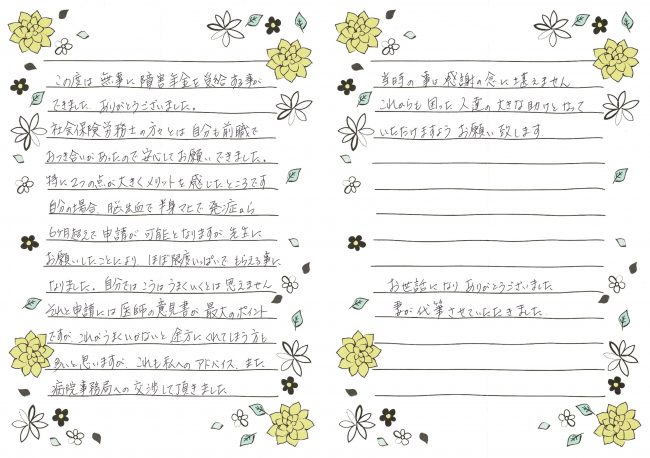 この度は 無事に 障害年金を 受給する事が
できました ありがとうございました。
社会保険労務士の方々とは 自分も前職で
おつき合いがあったので安心してお願いできました。
特に2つの点が大きくメリットを感じたところです
自分の場合、脳出血で半身マヒで発症から
6ヶ月超えで申請が可能となりますが先生に
お願いしたことにより、ほぼ限度いっぱいでもらえる事に
なりました。自分ではこうはうまくいくとは思えません
それと申請には医師の意見書が最大のポイント
ですがこれがうまくいかないと途方にくれてしまう方も
多いと思いますが、これも私へのアドバイス、また
病院事務局への交渉して頂きました
当時の事は感謝の念に堪えません
これからも困った人達の大きな助けとなって
いただけますようお願い致します
お世話になりありがとうございました
妻が代筆させていただきました